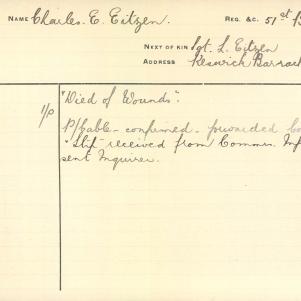 NAME Charles. E. Eitzen. REG. &C. 51st
NEXT OF KIN Sgt. L. Eitzen
ADDRESS Keswick Barrac
"Died of Wounds".
P/Cable - confirmed - forwarded
"Slip" received from Commn.
sent Inquirer.